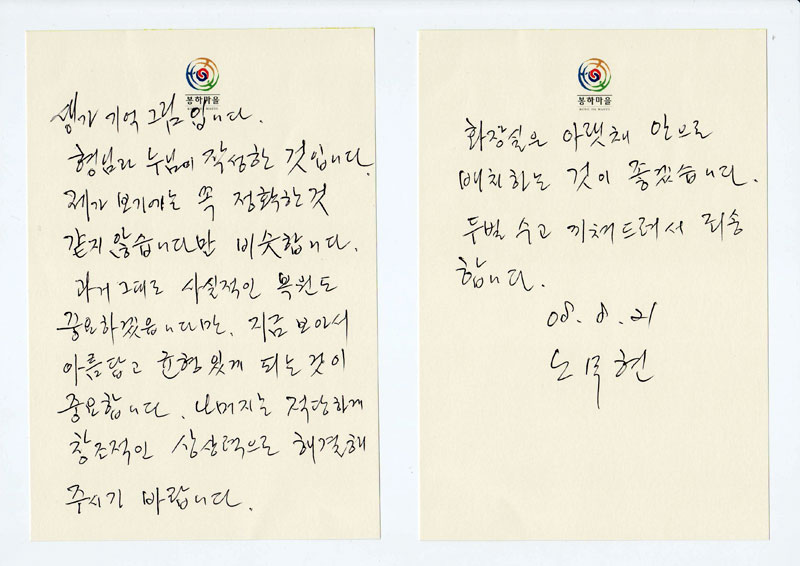 봉하마을
생가 기억 그림입니다.
형님과 누님이 작성한 것입니다.
제가 보기에는 꼭 정확한것
같지 않습니다만 비슷합니다.
과거 그대로 사실적인 복원도
중요하겠읍니다만, 지금 보아서
아름답고 균형 있게 되는 것이
중요합니다. 나머지는 적당하게
창조적인 상상력으로 해결해
주시기 바랍니다.
봉하마을
화장실은 아랫채 안으로
배치하는 것이 좋겠습니다.
두벌 수고 끼쳐드려서 죄송
합니다.
08. 8. 21
노무현